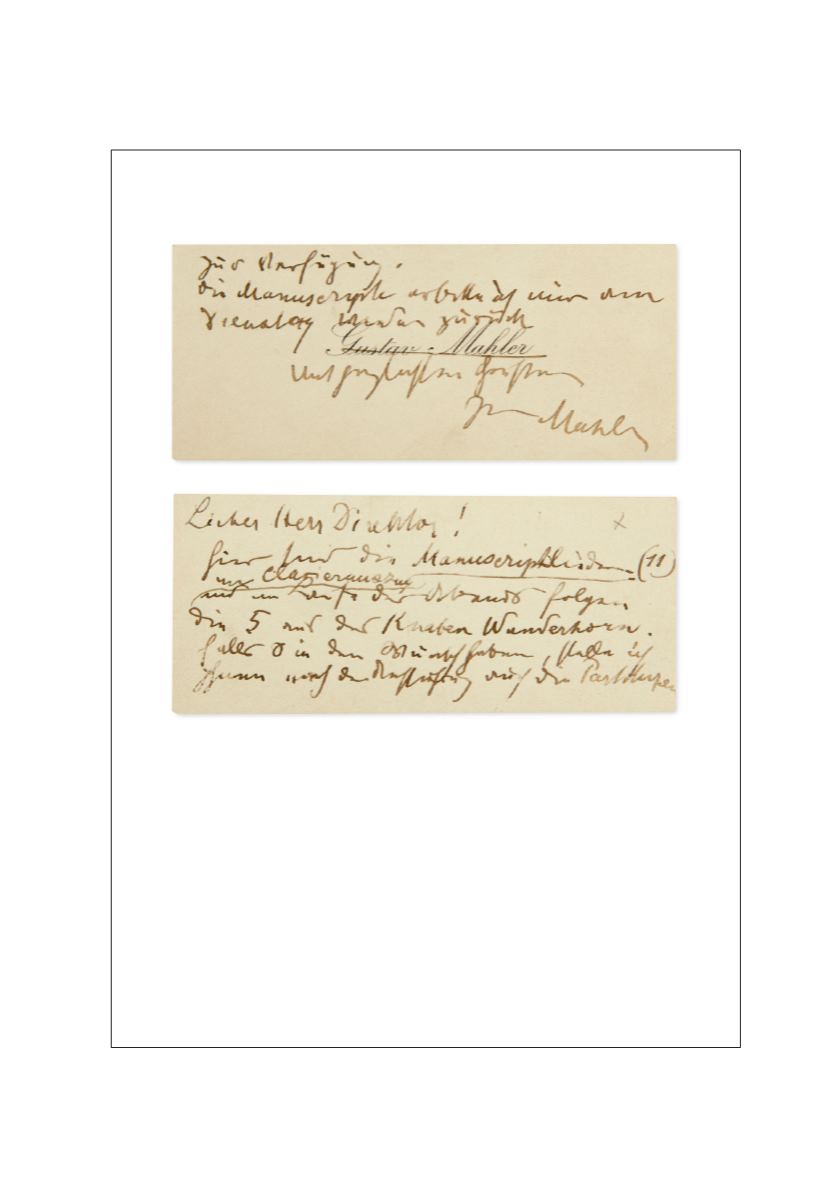 zur Verfügung.
Die Manuscripte erbitte ich mir am
Dienstag wieder zurück
Gustav Mahler
Mit herzlichsten Grüßen
Ihr Mahler
Lieber Herr Direktor!
Hier sind die Manuscriptlieder (11)
nur Clavierauszug
und im Laufe des Abends folgen
die 5 aus des Knaben Wunderhorn.
Falls Sie den Wunsch haben, stelle ich
Ihnen noch die auch die Partituren